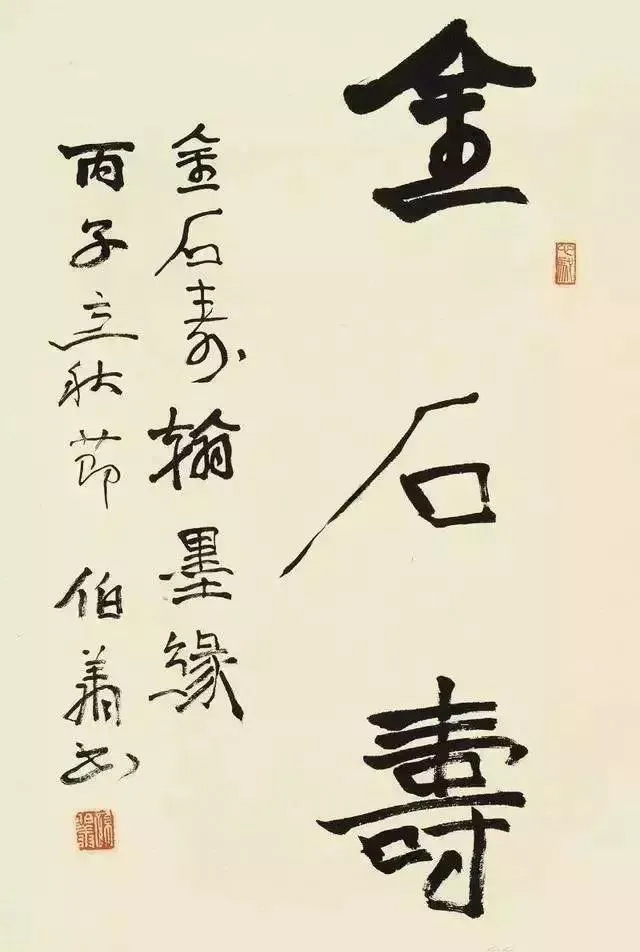 金石壽
金石寿翰墨緣
丙子立秋節 伯翔书